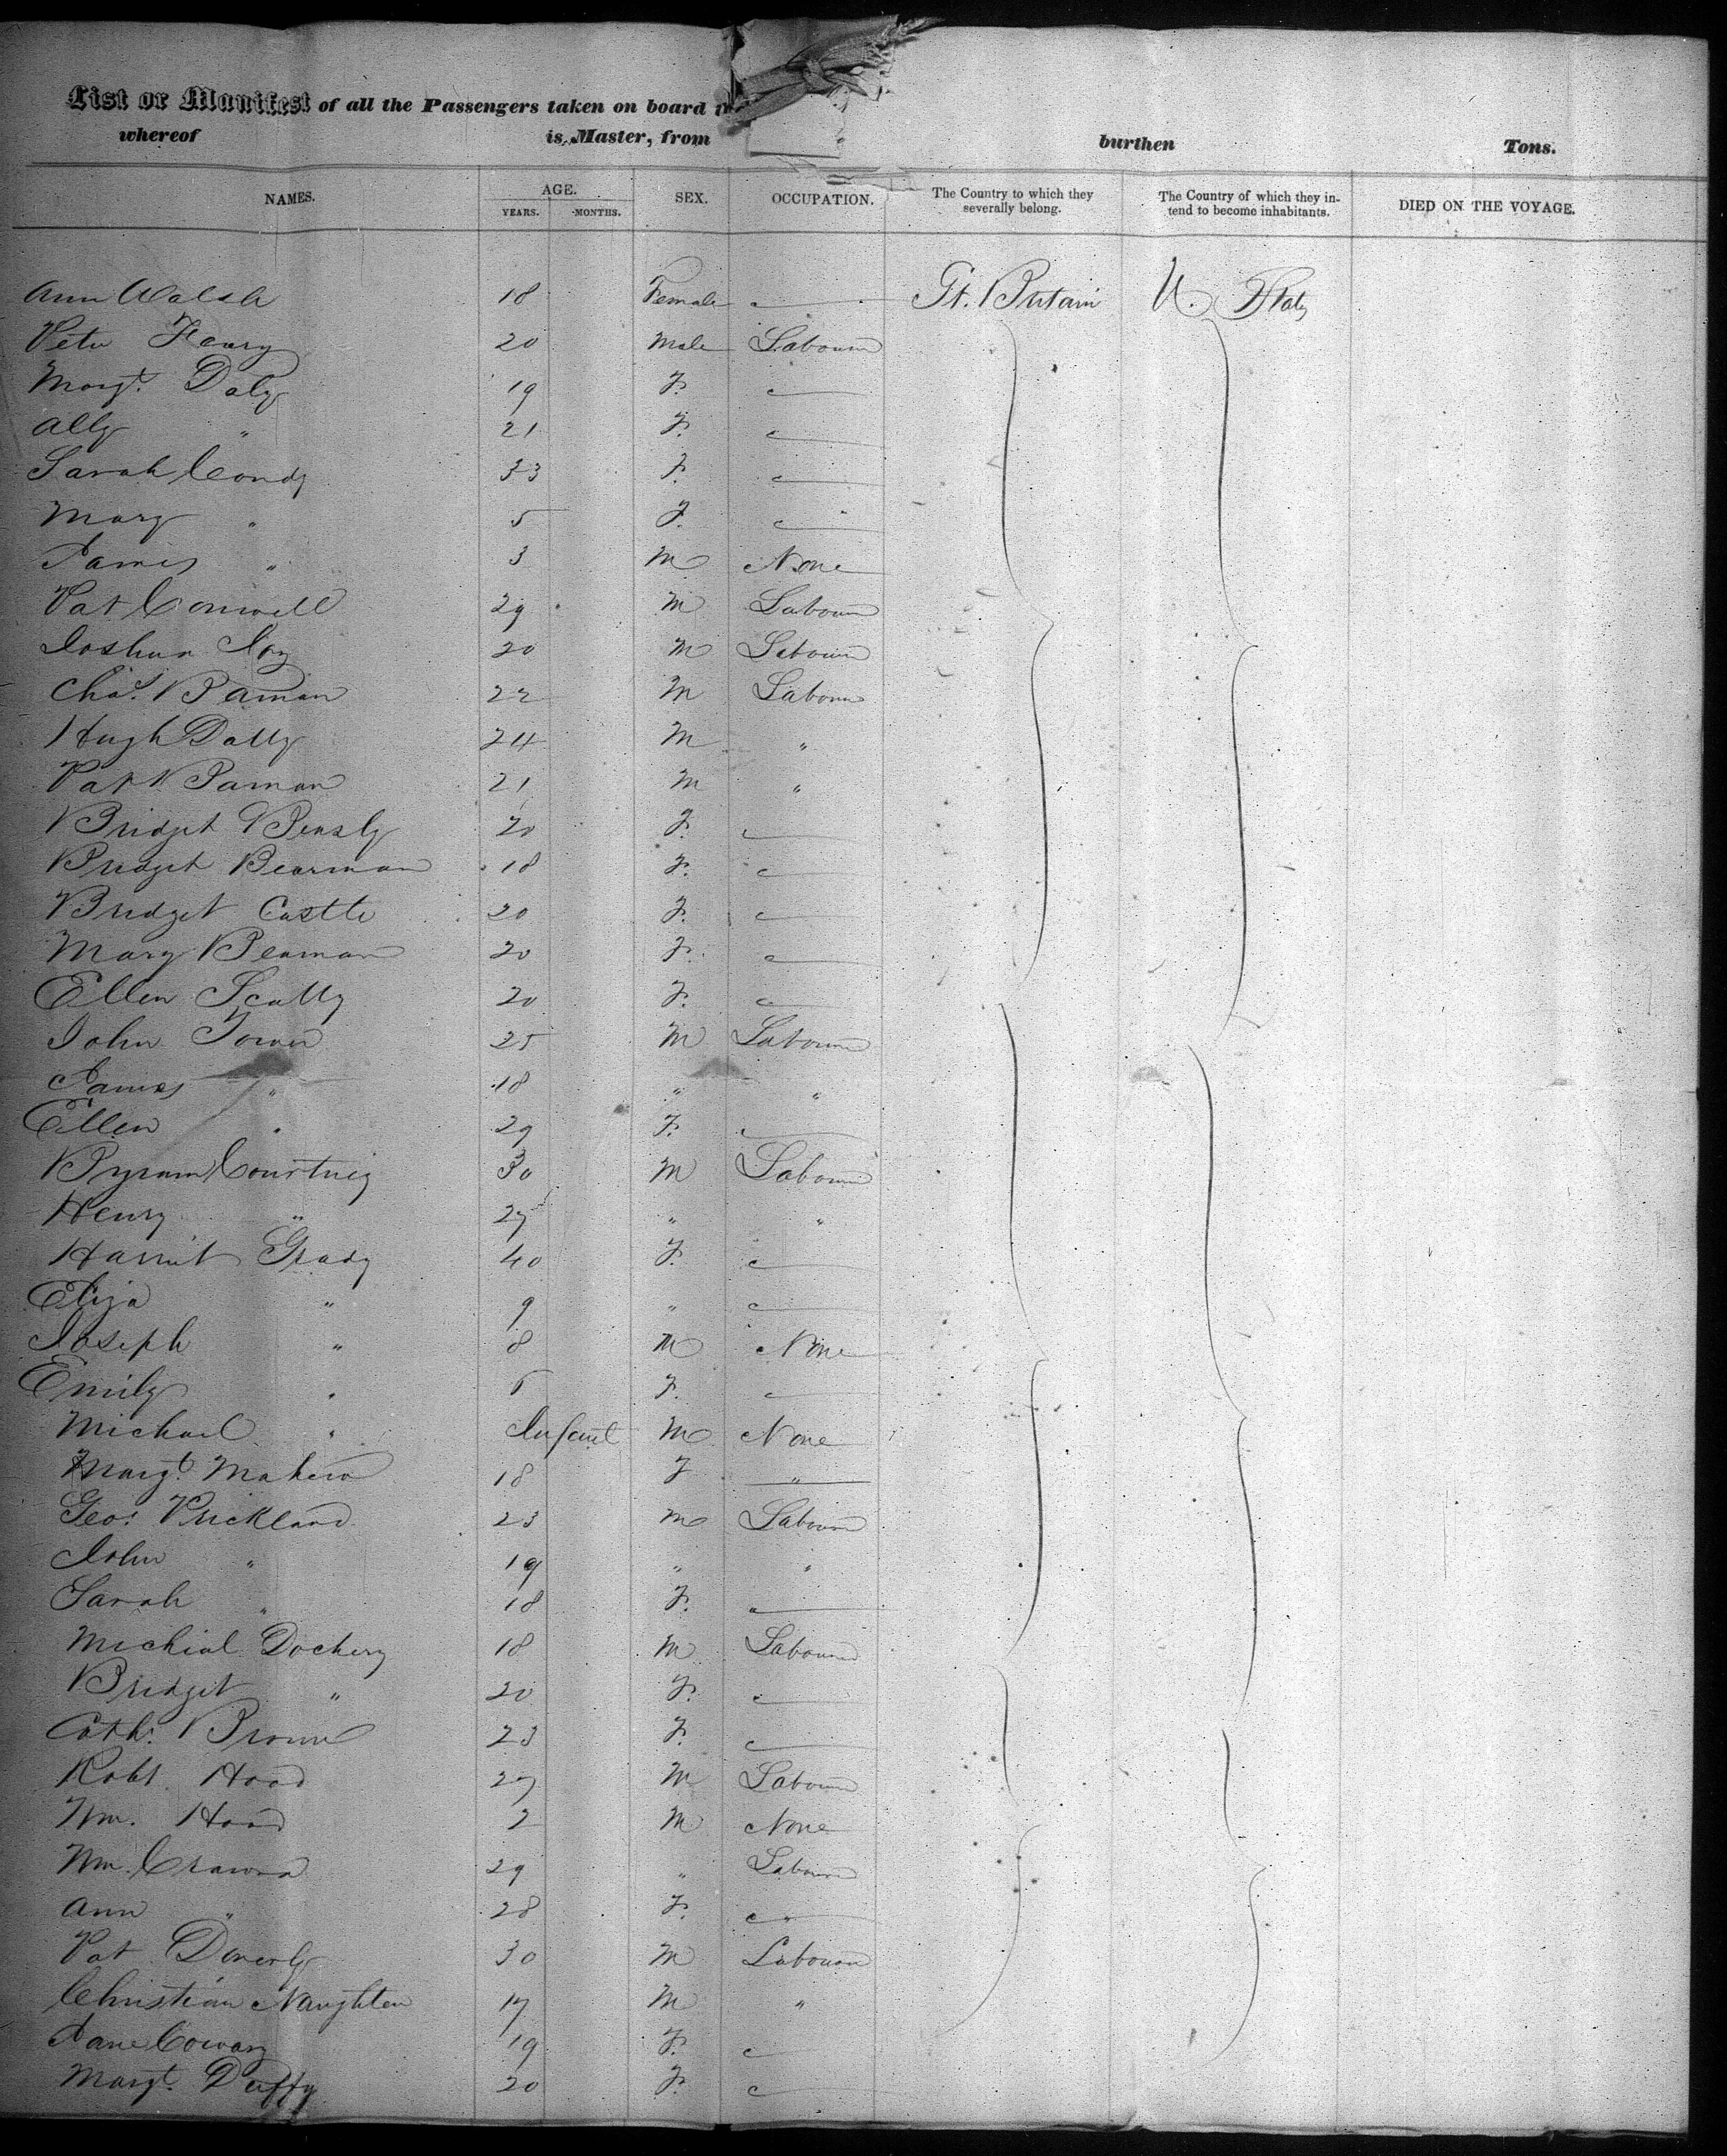 List or Manifest of all the Passengers taken on board the
whereof is Master, from burthen Tons.
NAMES. AGE. SEX. OCCUPATION. The Country to which they severally belong. The Country of which they intend to become inhabitants. DIED ON THE VOYAGE.
YEARS. MONTHS.
Ann Walsh 18 Female Gt. Britain U. States
Peter 20 Male Labourer
Margt. Daly 19 F.
Ally " 21 F.
Sarah Condy 33 F.
Mary " 5 F.
James " 3 M None
Pat Conwell 29 M Labourer
Joshua 20 M Labourer
Chas. 22 M Labourer
Hugh Dally 24 M "
Pat 21 M "
Bridget 20 F.
Bridget Bearman 18 F.
Bridget Castle 20 F.
Mary Beaman 20 F.
Ellen Scully 20 F.
John 25 M Labourer
James " 18 " "
Ellen " 29 F.
Courtney 30 M Labourer
Henry " 27 " "
Harriet Grady 40 F.
Eliza " 9 "
Joseph " 8 M None
Emily " F.
Michael " Infant M None
Margt. 18 F "
Geo: Prickland 23 M Labourer
John " 19 " "
Sarah " 18 F. "
Michial Dockery 18 M Labourer
Bridget " 20 F.
Cath: Brown 23 F.
Robt. Hood 27 M Labourer
Wm. Hood 2 M None
Wm. 29 " Labourer
Ann " 28 F. "
Pat 30 M Labourer
Christian Naughten 17 M "
Jane 19 F.
Margt. Duffy 20 F.